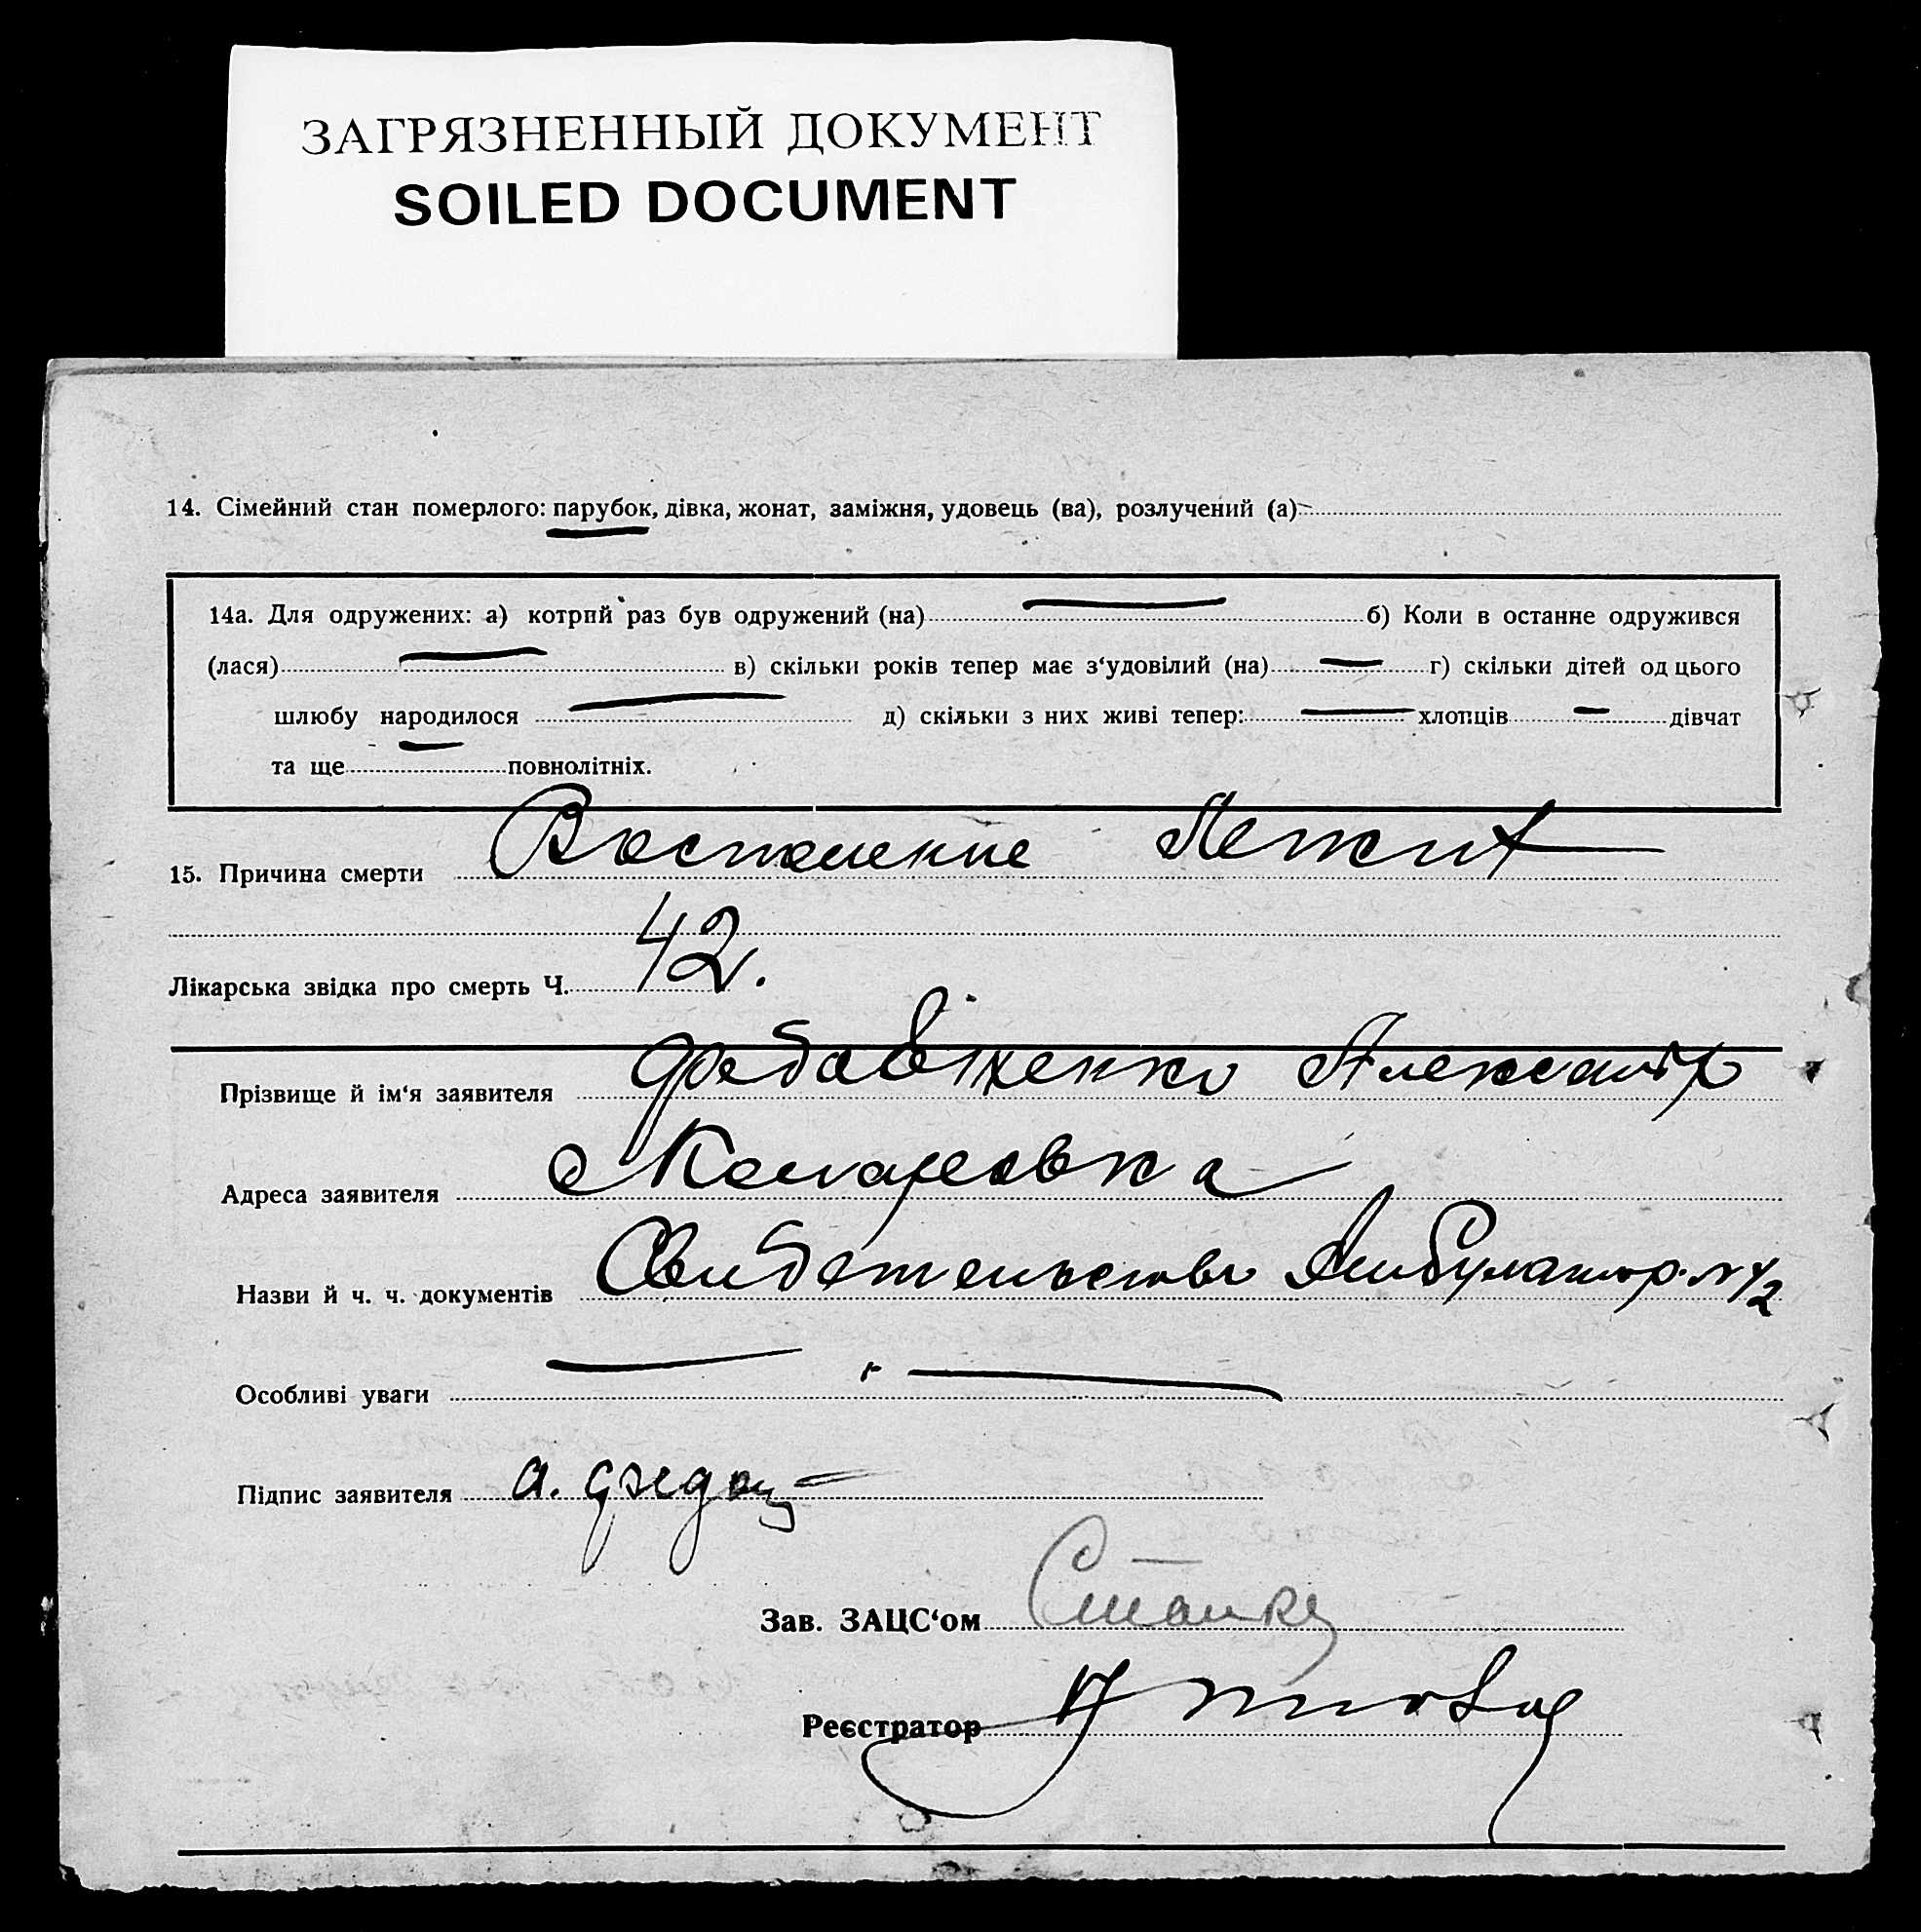 ЗАГРЯЗНЕННЫЙ ДОКУМЕНТ
SOILED DOCUMENT
14. Сімейний стан померлого: парубок, дівка, жонат, заміжня, удовець (ва), розлучений (а)
14а. Для одружених: а) котрий раз був одружений (на) — б) Коли в останне одружився
(лася) — в) скільки років тепер має з‘удовілий (на) — г) скільки дітей од цього
шлюбу народилося — д) скільки з них живі тепер: — хлопців — дівчат
та ще — повнолітніх.
15. Причина смерти Воспаление Легких
Лікарська звідка про смерть Ч. 42.
Прізвище й ім‘я заявителя Александр
Адреса заявителя с Комаровка
Назви й ч. ч. документів Свидетельство Амбулатор. № 42
Особливі уваги — " —
Підпис заявителя А.
Зав. ЗАЦС‘ом
Реєстратор